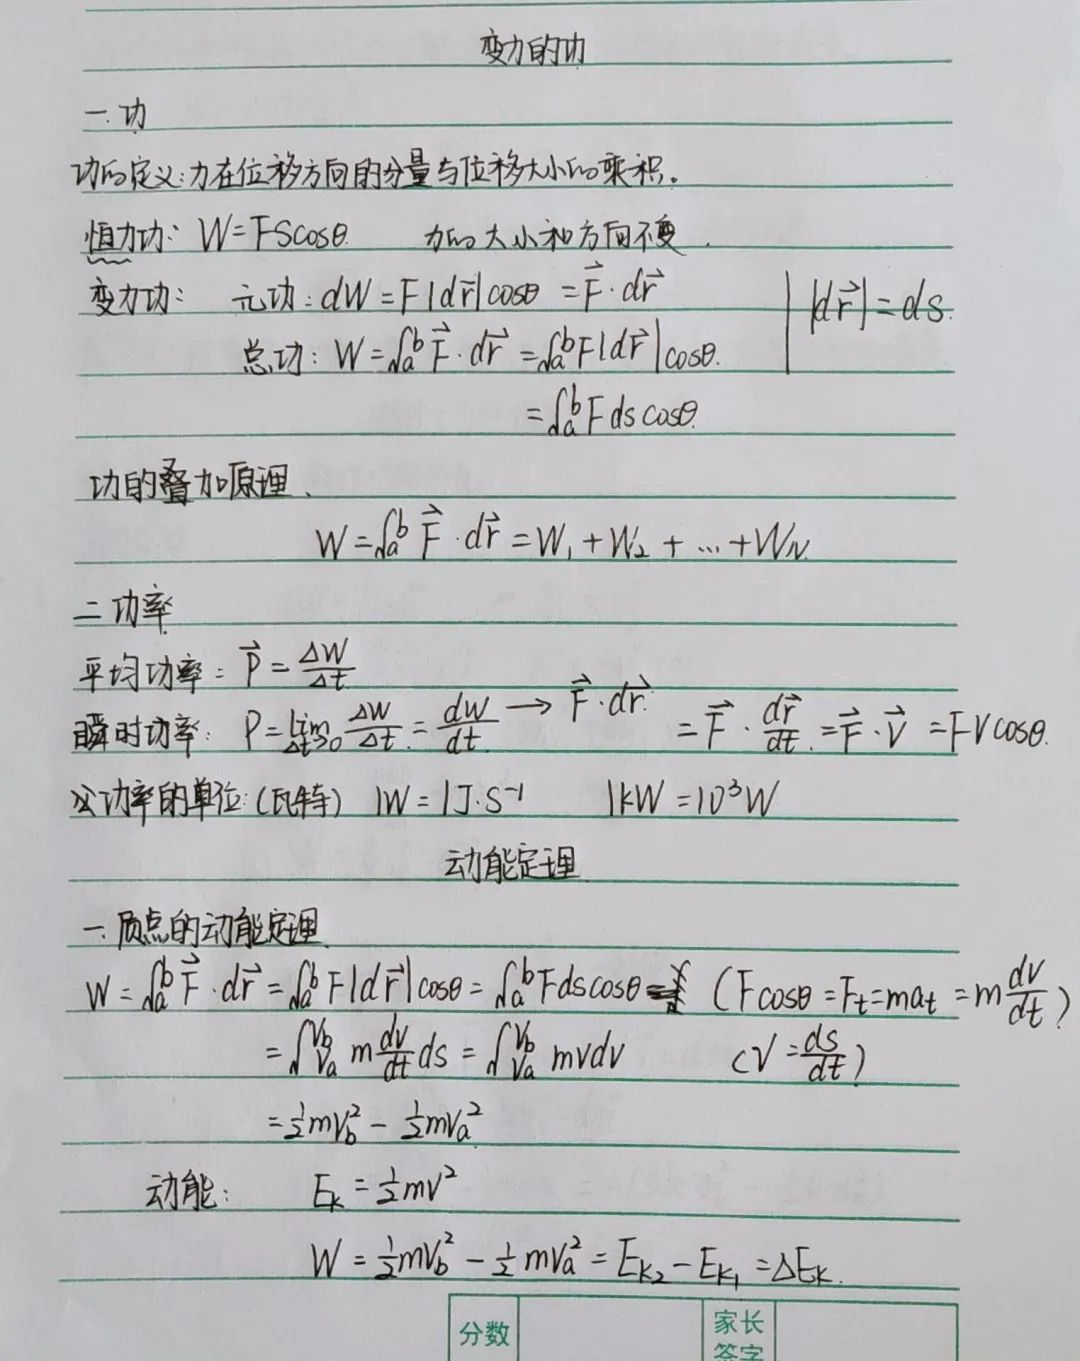 变力的功
一.功
功的定义:力在位移方向的分量与位移大小的乘积.
恒力功: W=FScosθ. 力的大小和方向不变.
变力功: 元功: dW=F|dr⃗|cosθ=F⃗·dr⃗ |dr⃗|=ds.
总功: W=∫ₐᵇF⃗·dr⃗=∫ₐᵇF|dr⃗|cosθ.
=∫ₐᵇFdscosθ.
功的叠加原理.
W=∫ₐᵇF⃗·dr⃗=W₁+W₂+…+W_N.
二 功率
平均功率: P⃗=ΔW/Δt
瞬时功率: P=lim_{Δt→0} ΔW/Δt=dW/dt→F⃗·dr⃗ =F⃗·dr⃗/dt=F⃗·V⃗=FVcosθ.
功率的单位:(瓦特) 1W=1J·S⁻¹ 1kW=10³W
动能定理
一.质点的动能定理
W=∫ₐᵇF⃗·dr⃗=∫ₐᵇF|dr⃗|cosθ=∫ₐᵇFdscosθ (Fcosθ=Fₜ=maₜ=m dv/dt)
=∫_{Va}^{Vb} m dv/dt ds=∫_{Va}^{Vb} mvdv (V=ds/dt)
=½mV_b²-½mVₐ²
动能: E_k=½mv²
W=½mV_b²-½mVₐ²=E_{k2}-E_{k1}=ΔE_k.
分数 家长
签字